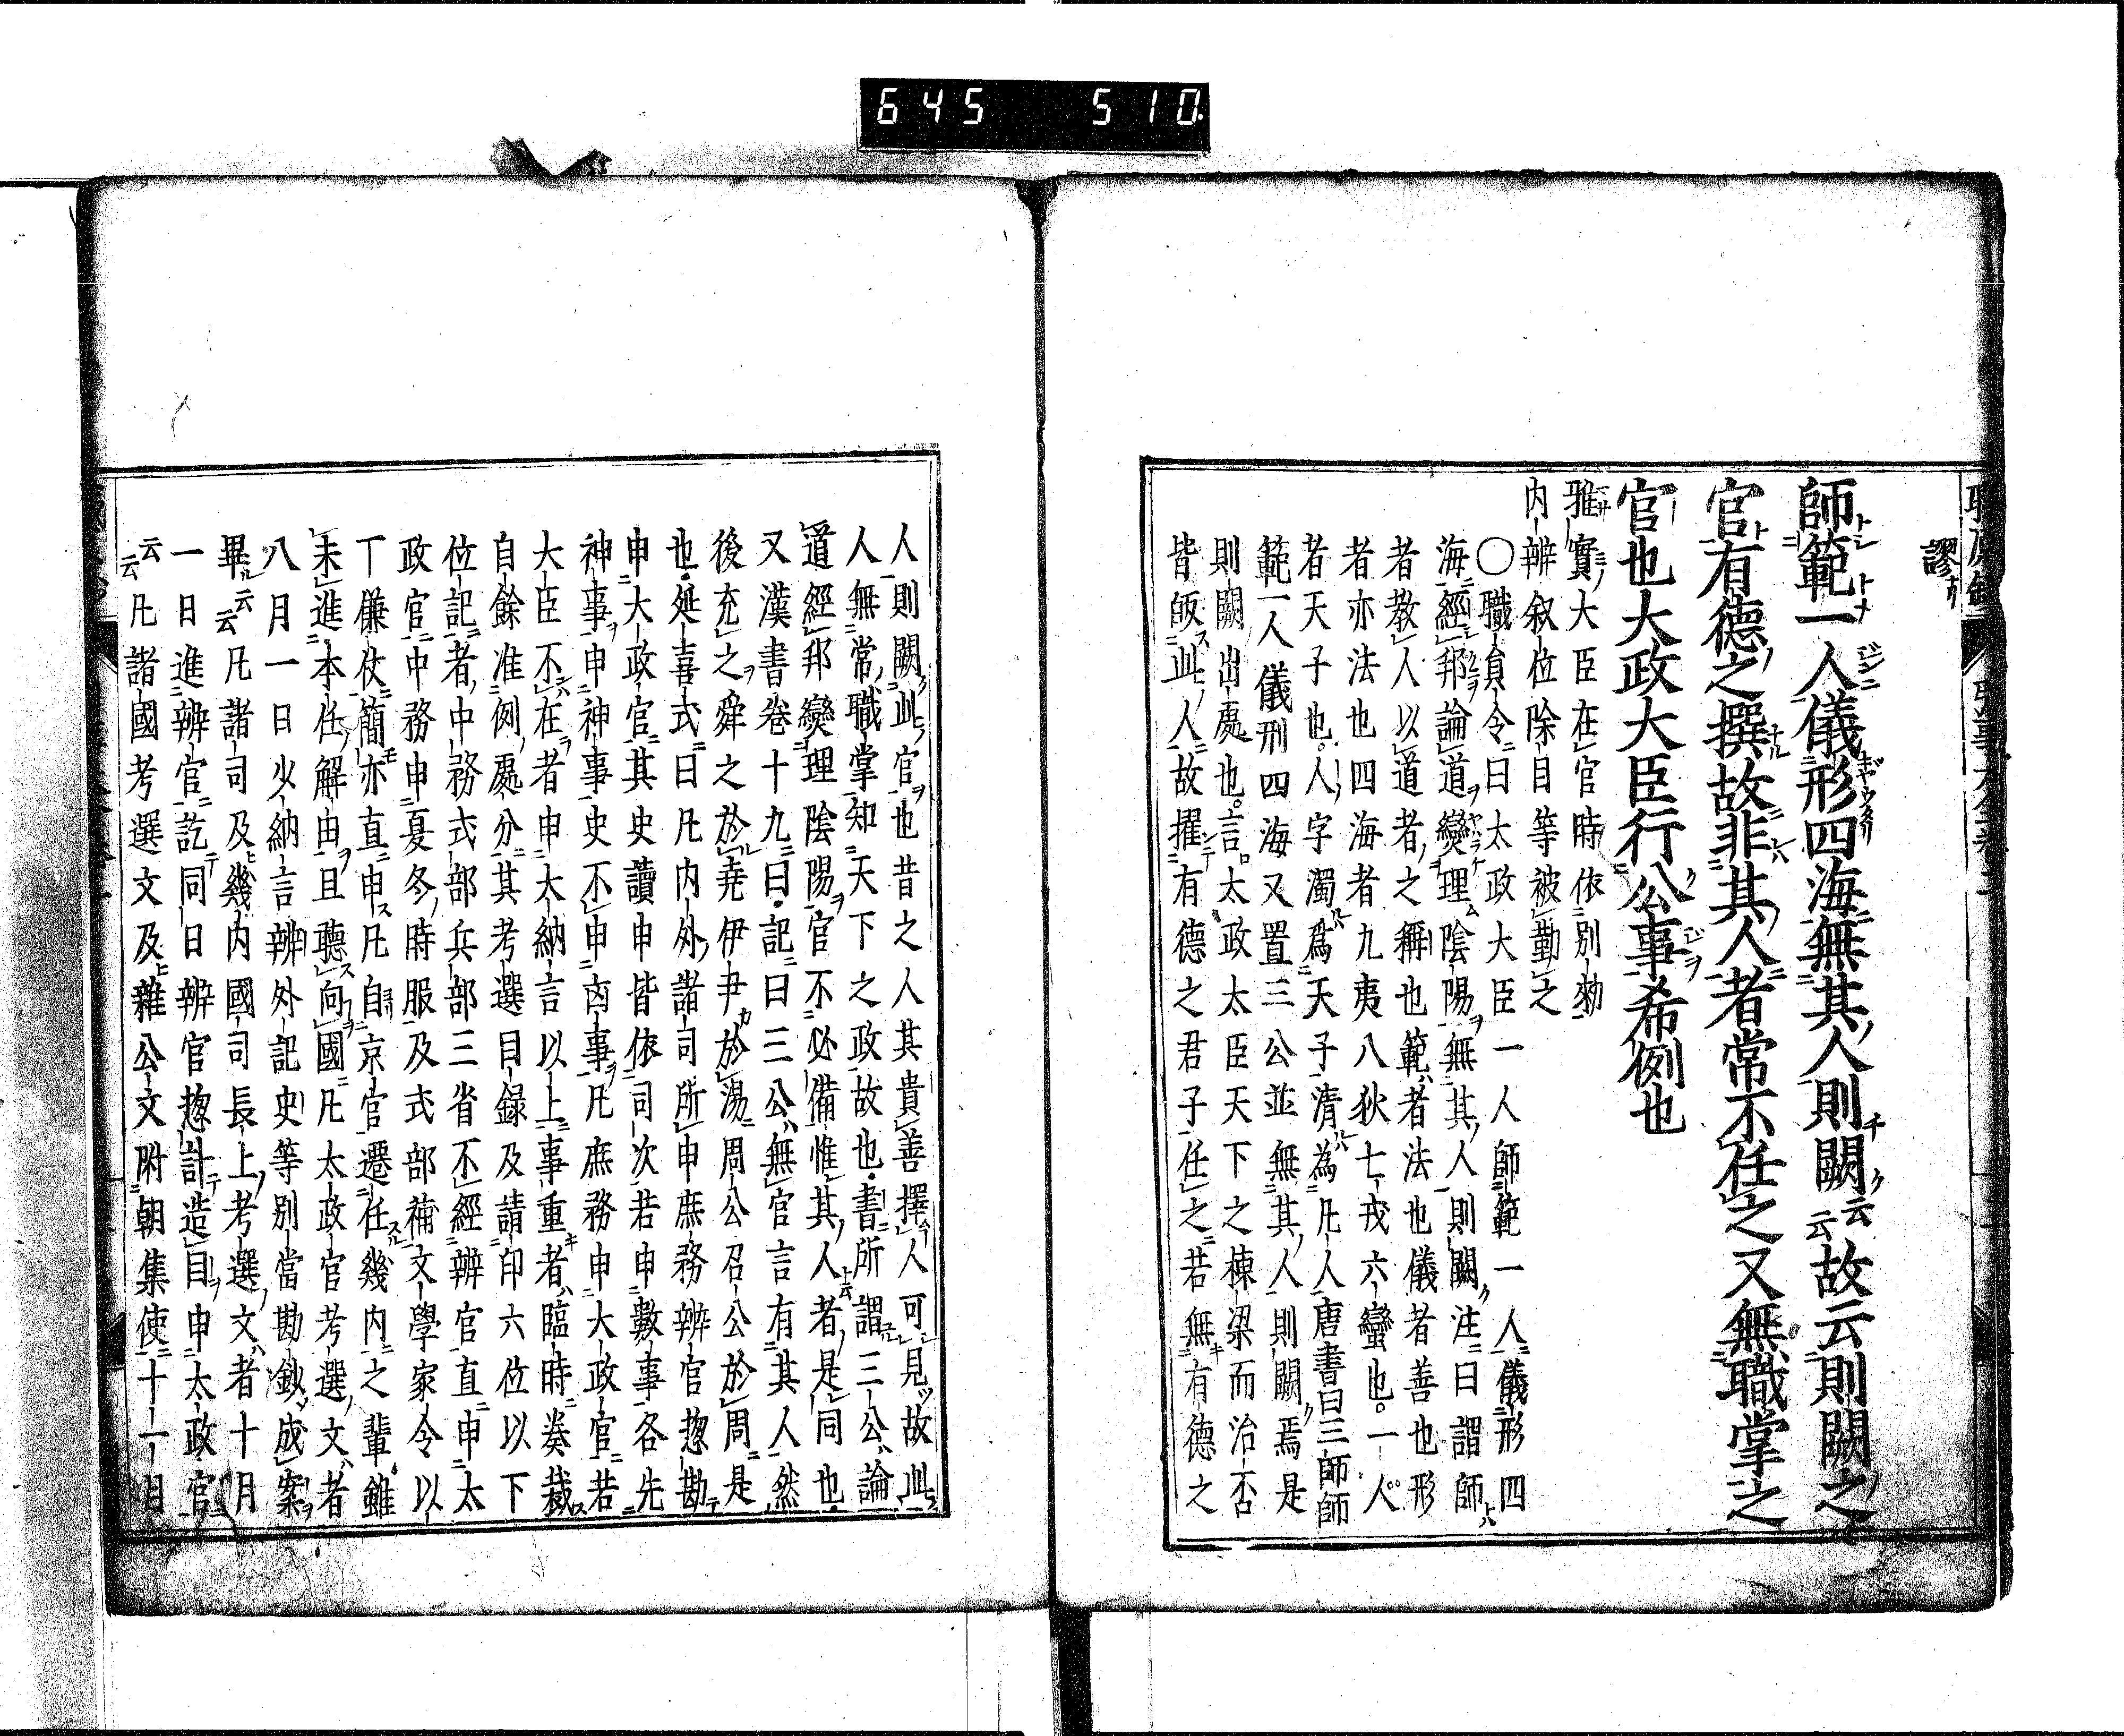 645 510
謬
師範一人儀形四海無其人則闕云云故云則闕之
官有德之撰故非其人者常不任之又無職掌之
官也大政大臣行公事希例也
雅實大臣在官時依別勅
内辨叙位除目等被勤之
〇職員令曰太政大臣一人師範一人儀形四
海經邦論道爕理陰陽無其人則闕注曰謂師
者教人以道者之稱也範者法也儀者善也形
者亦法也四海者九夷八狄七戎六蠻也一人
者天子也人字濁爲天子清為凡人唐書曰三師師
範一人儀刑四海又置三公並無其人則闕焉是
則闕出處也言太政太臣天下之棟梁而治否
皆皈此人故擢有德之君子任之若無有德之
人則闕此官也昔之人其貴善擇人可見故此
人無常職掌知天下之政故也書所謂三公論
道經邦爕理陰陽官不必備惟其人者是同也
又漢書卷十九曰記曰三公無官言有其人然
後充之舜之於堯伊尹於湯周公召公於周是
也延喜式曰凡内外諸司所申庶務辨官惣勘
申大政官其史讀申皆依司次若申數事各先
神事申神事史不申凶事凡庶務申大政官若
大臣不在者申大納言以上事重者臨時奏裁
自餘准例處分其考選目録及請印六位以下
位記者中務式部兵部三省不經辨官直申太
政官中務申夏冬時服及式部補文學家令以
丁傔仗簡亦直申凡自京官遷任幾内之輩雖
未進本任解由且聽向國凡太政官考選文者
八月一日少納言辨外記史等別當勘鈔成案
畢云云凡諸司及幾内國司長上考選文者十月
一日進辨官訖同日辨官惣計造目申太政官
云云凡諸國考選文及雜公文附朝集使十一月